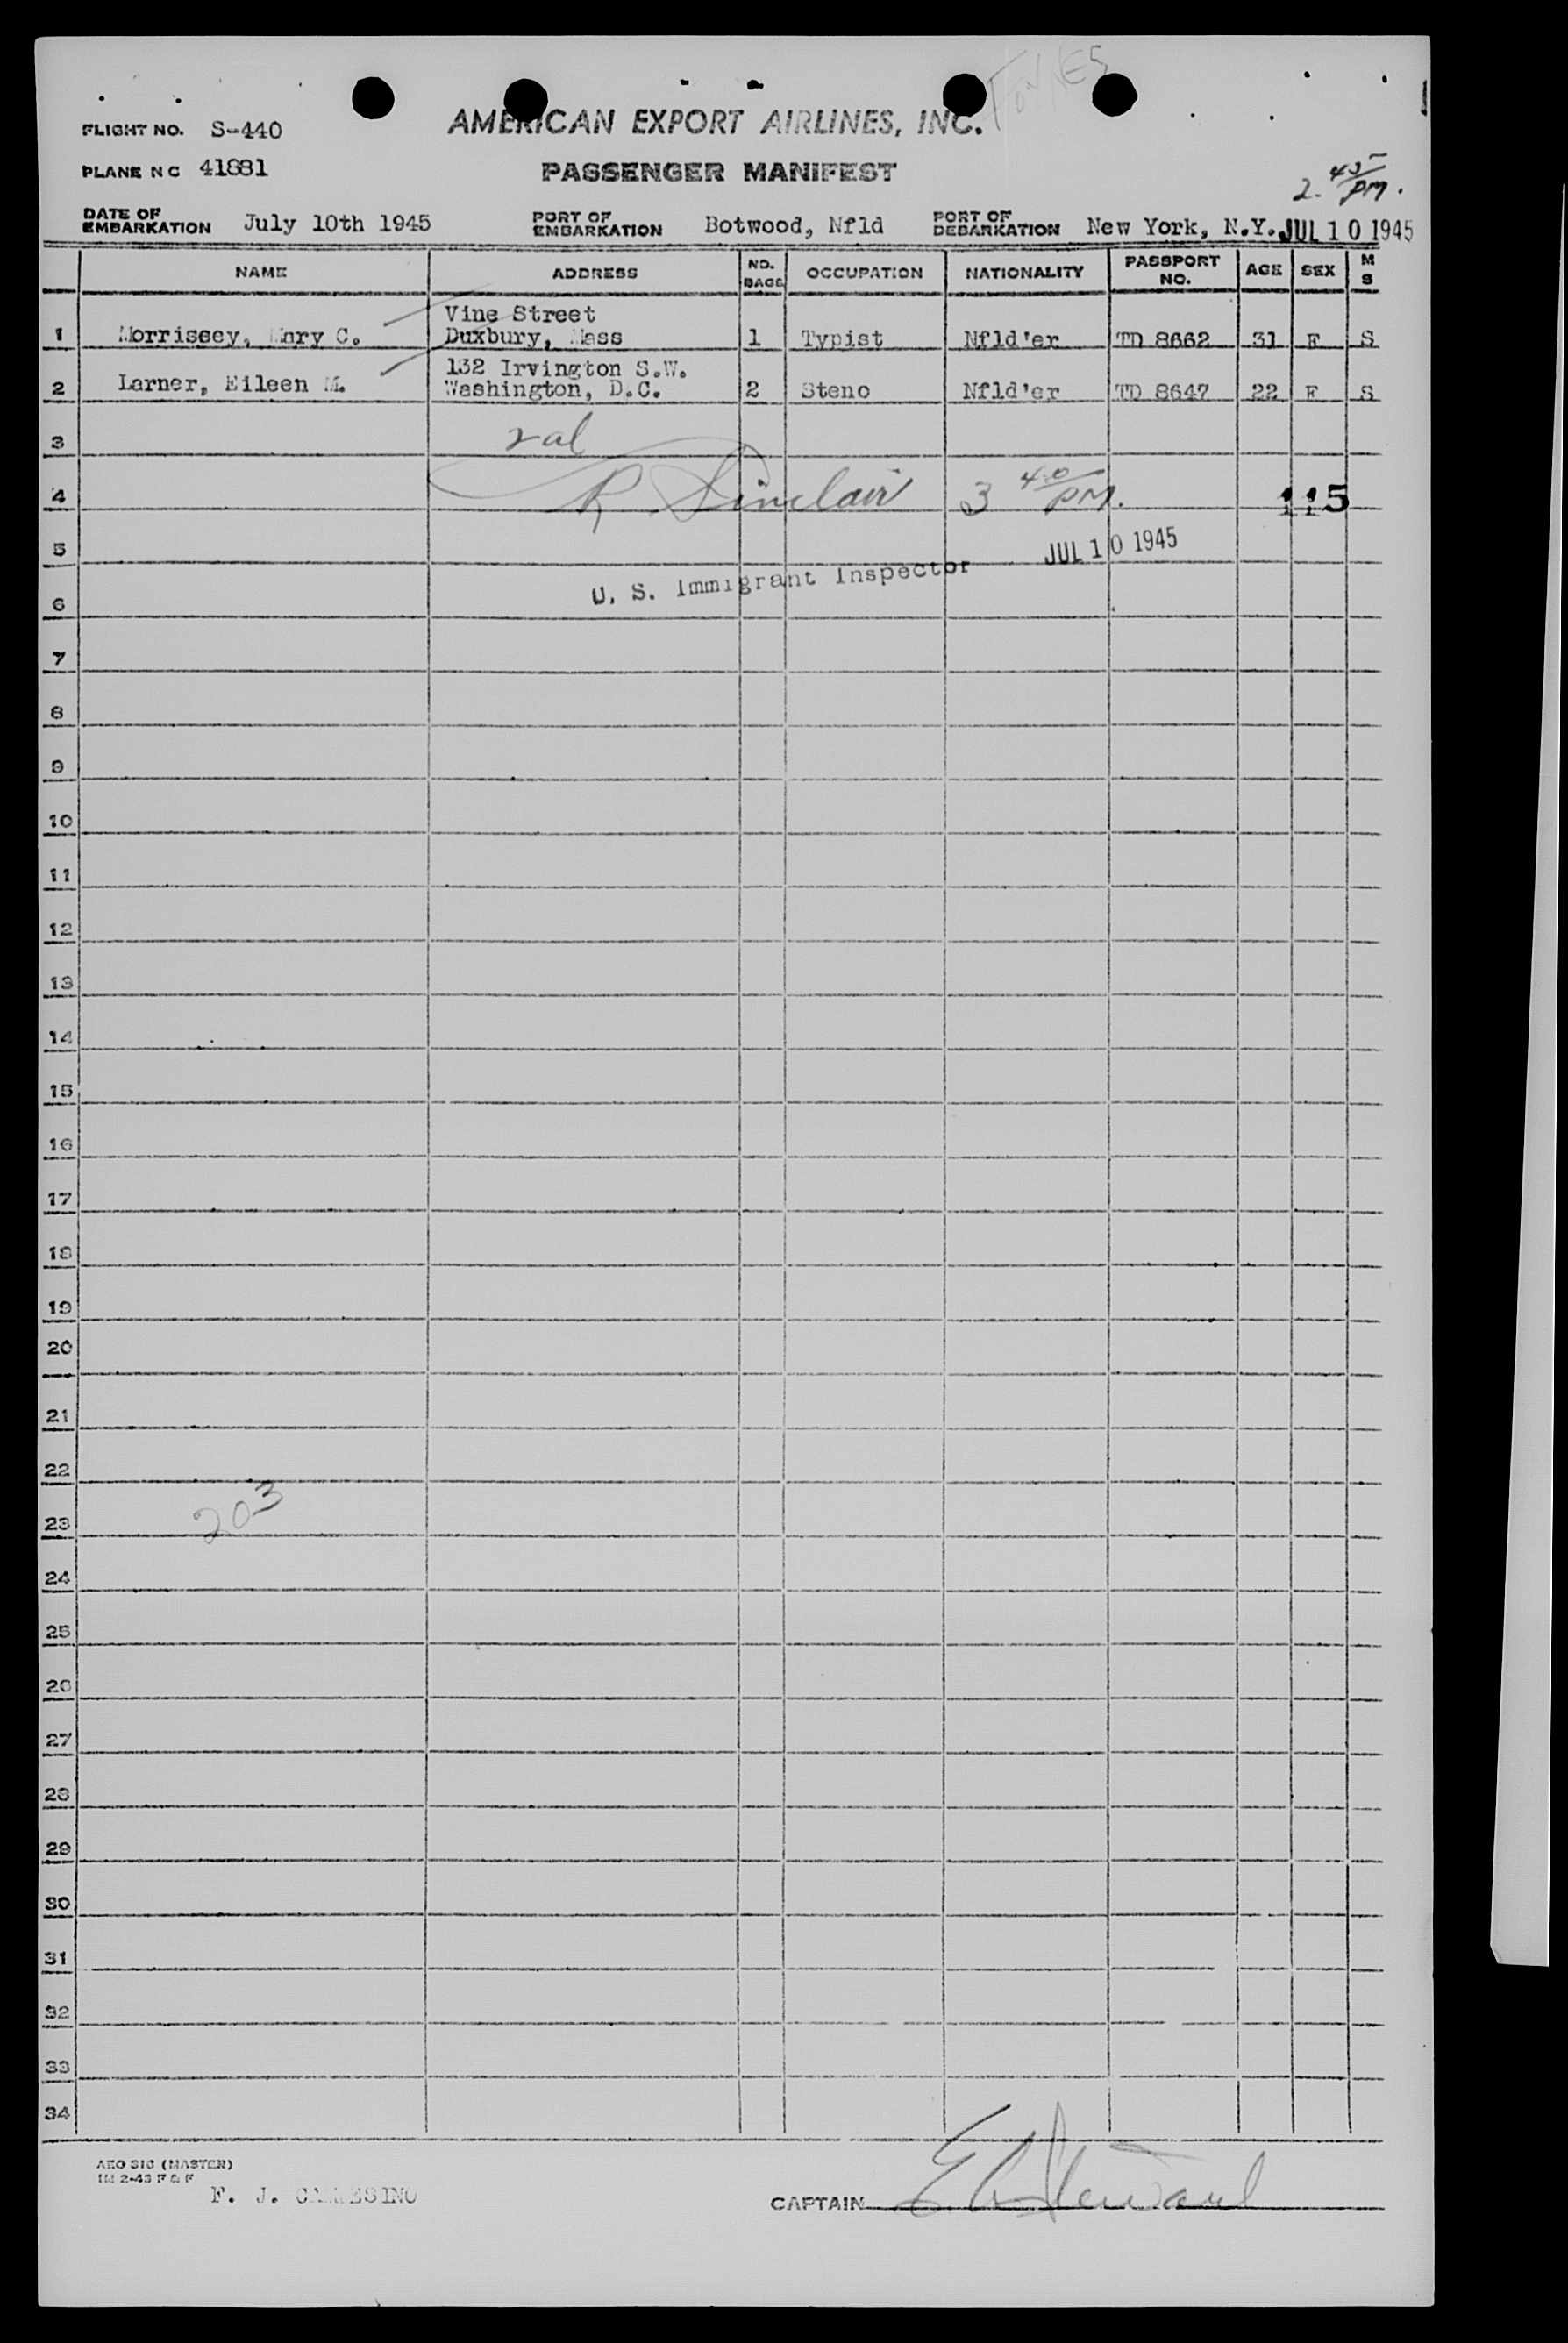 FLIGHT NO. S-440
AMERICAN EXPORT AIRLINES, INC.
PLANE NC 41881
PASSENGER MANIFEST
2 45 PM.
DATE OF EMBARKATION July 10th 1945 PORT OF EMBARKATION Botwood, Nfld PORT OF DEBARKATION New York, N.Y. JUL 10 1945
NAME ADDRESS NO. BAGS OCCUPATION NATIONALITY PASSPORT NO. AGE SEX M S
Vine Street
1 Morrissey, Mary C. Duxbury, Mass 1 Typist Nfld'er TD 8662 31 F S
132 Irvington S.W.
2 Larner, Eileen M. Washington, D.C. 2 Steno Nfld'er TD 8647 22 F S
3 2 al
4 R Sinclair 3 40 PM. 115
5 JUL 10 1945
U. S. Immigrant Inspector
6
7
8
9
10
11
12
13
14
15
16
17
18
19
20
21
22
23 203
24
25
26
27
28
29
30
31
32
33
34
AEO 310 (MASTER)
1M 2-43 F & F
F. J.
CAPTAIN Stewart